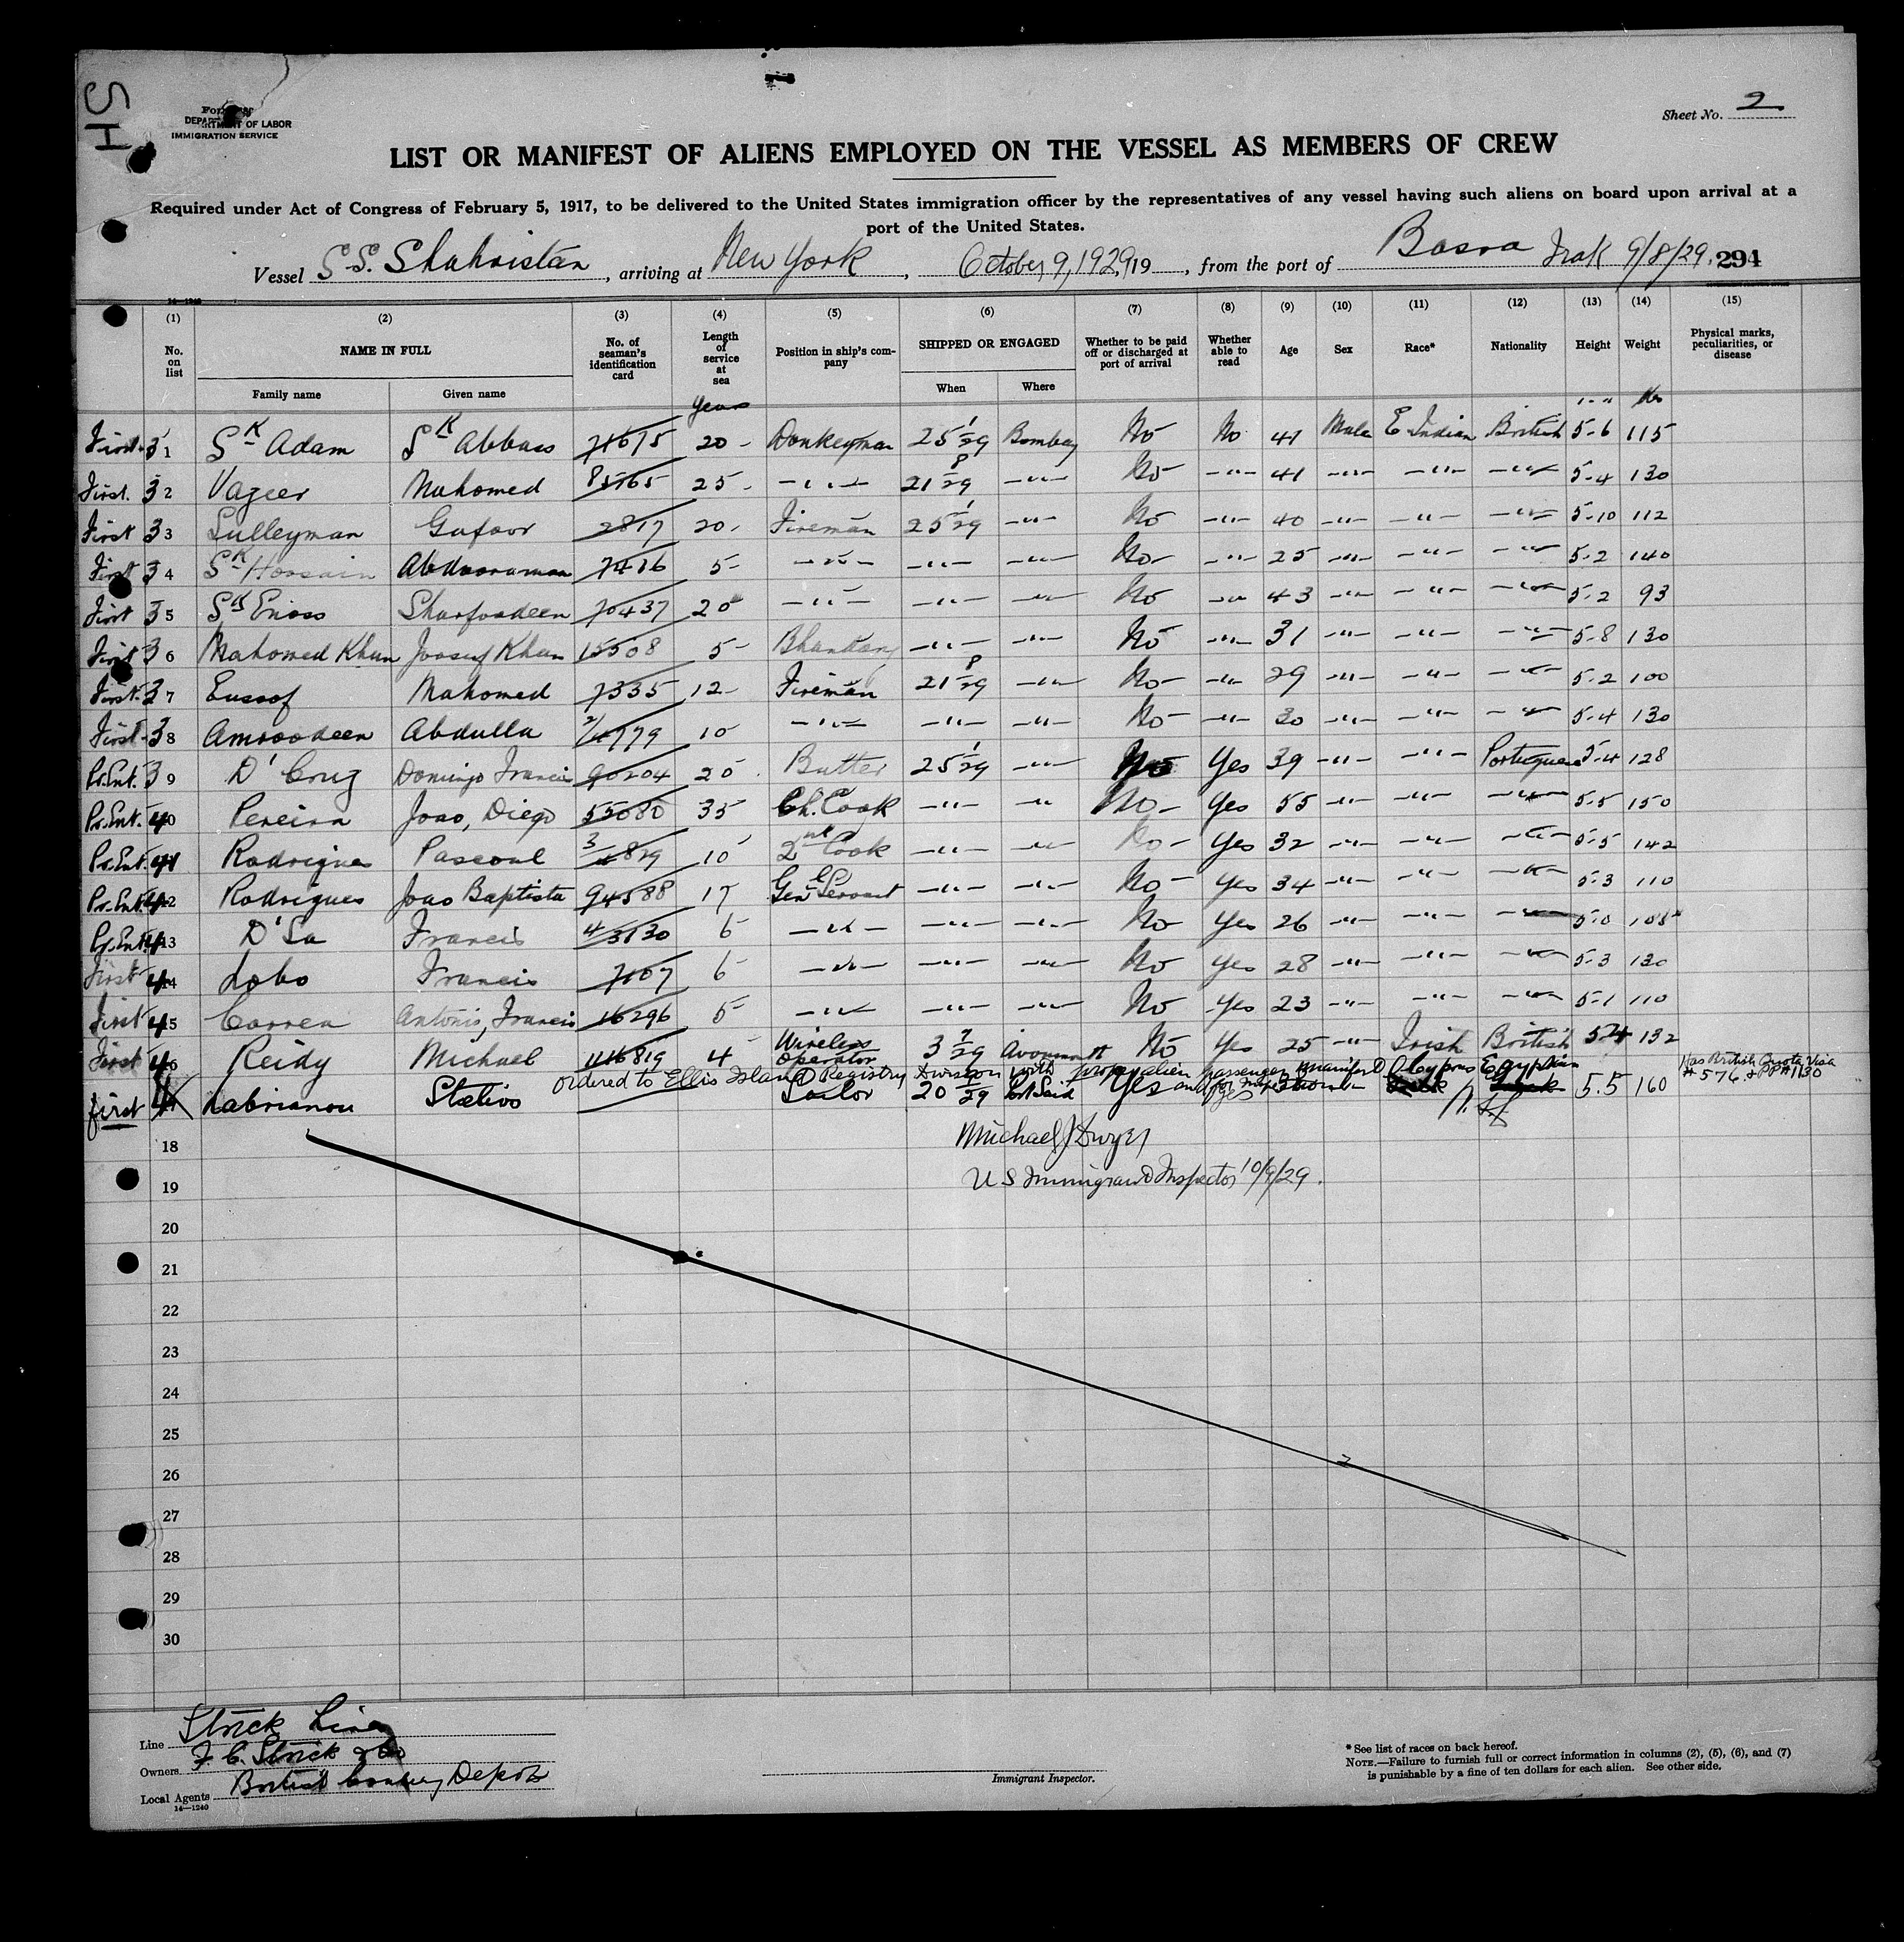 SH
DEPARTMENT OF LABOR
IMMIGRATION SERVICE
Sheet No. 2
LIST OR MANIFEST OF ALIENS EMPLOYED ON THE VESSEL AS MEMBERS OF CREW
Required under Act of Congress of February 5, 1917, to be delivered to the United States immigration officer by the representatives of any vessel having such aliens on board upon arrival at a
port of the United States.
Vessel S.S. Shahristan, arriving at New York, October 9, 1929, 19, from the port of Basra Irak 9/8/29. 294
14—1240
(1) (2) (3) (4) (5) (6) (7) (8) (9) (10) (11) (12) (13) (14) (15)
No. on list NAME IN FULL No. of seaman's identification card Length of service at sea Position in ship's company SHIPPED OR ENGAGED Whether to be paid off or discharged at port of arrival Whether able to read Age Sex Race* Nationality Height Weight Physical marks, peculiarities, or disease
Family name Given name When Where
years
First 31 Sk Adam Sk Abbas 71675 20 - Donkeyman 25 1/29 Bombay No No 41 Male E Indian British 5-6 115
First. 32 Vazeer Mahomed 85765 25 - -"- 21 8/29 -"- No -"- 41 -"- -"- -"- 5-4 130
First 33 Sulleyman Gafoor 2817 20 - Fireman 25 1/29 -"- No -"- 40 -"- -"- -"- 5-10 112
First 34 Sk Hossain Abdooraman 7416 5- -"- -"- -"- No -"- 25 -"- -"- -"- 5-2 140
First 35 Sk Enoos Sharfoodeen 70437 20 -"- -"- -"- No -"- 43 -"- -"- -"- 5-2 93
First 36 Mahomed Khan Joosuf Khan 15508 5- Bhandary -"- -"- No -"- 31 -"- -"- -"- 5-8 130
First. 37 Eussof Mahomed 7335 12- Fireman 21 8/29 -"- No -"- 29 -"- -"- -"- 5-2 100
First 38 Amroodeen Abdulla 10 -"- -"- -"- No -"- 30 -"- -"- -"- 5-4 130
Pr.Ent. 39 D'Cruz Domingo Francis 90204 20 Butler 25 1/29 -"- No Yes 39 -"- -"- Portuguese 5-4 128
Pr.Ent. 40 Pereira Joao, Diego 55080 35 Ch. Cook -"- -"- No - Yes 55 -"- -"- -"- 5-5 150
Pr.Ent. 41 Rodrigues Pascoal 3/829 10 2nd Cook -"- -"- No - Yes 32 -"- -"- -"- 5-5 142
Pr.Ent. 42 Rodrigues Joao Baptista 94588 17 Gen Servant -"- -"- No - Yes 34 -"- -"- -"- 5-3 110
Pr.Ent. 43 D'Sa Francis 4/3130 6 -"- -"- -"- No Yes 26 -"- -"- -"- 5-0 108
First 44 Lobo Francis 7107 6 -"- -"- -"- No Yes 28 -"- -"- -"- 5-3 130
First 45 Correa Antonis, Francis 16296 5 -"- -"- -"- No Yes 23 -"- -"- -"- 5-1 110
First 46 Reidy Michael 1116819 4 Wireless Operator 3 7/29 Avonmouth No Yes 25 -"- Irish British 5-7 132
ordered to Ellis Island Registry Division with proper alien passenger manifest and for inspection Cyprus Egyptian Has British Quota Visa # 576 & PP# 1130
first Labrianou Stelios Sailor 20 9/29 Pt Said Yes Yes 5.5 160
Michael J Dwyer
18
US Immigrant Inspector 10/9/29.
19
20
21
22
23
24
25
26
27
28
29
30
Line Strick Line
Owners F. C. Strick & Co
Local Agents British Company Depot
14—1240
Immigrant Inspector.
* See list of races on back hereof.
NOTE.—Failure to furnish full or correct information in columns (2), (5), (6), and (7)
is punishable by a fine of ten dollars for each alien. See other side.